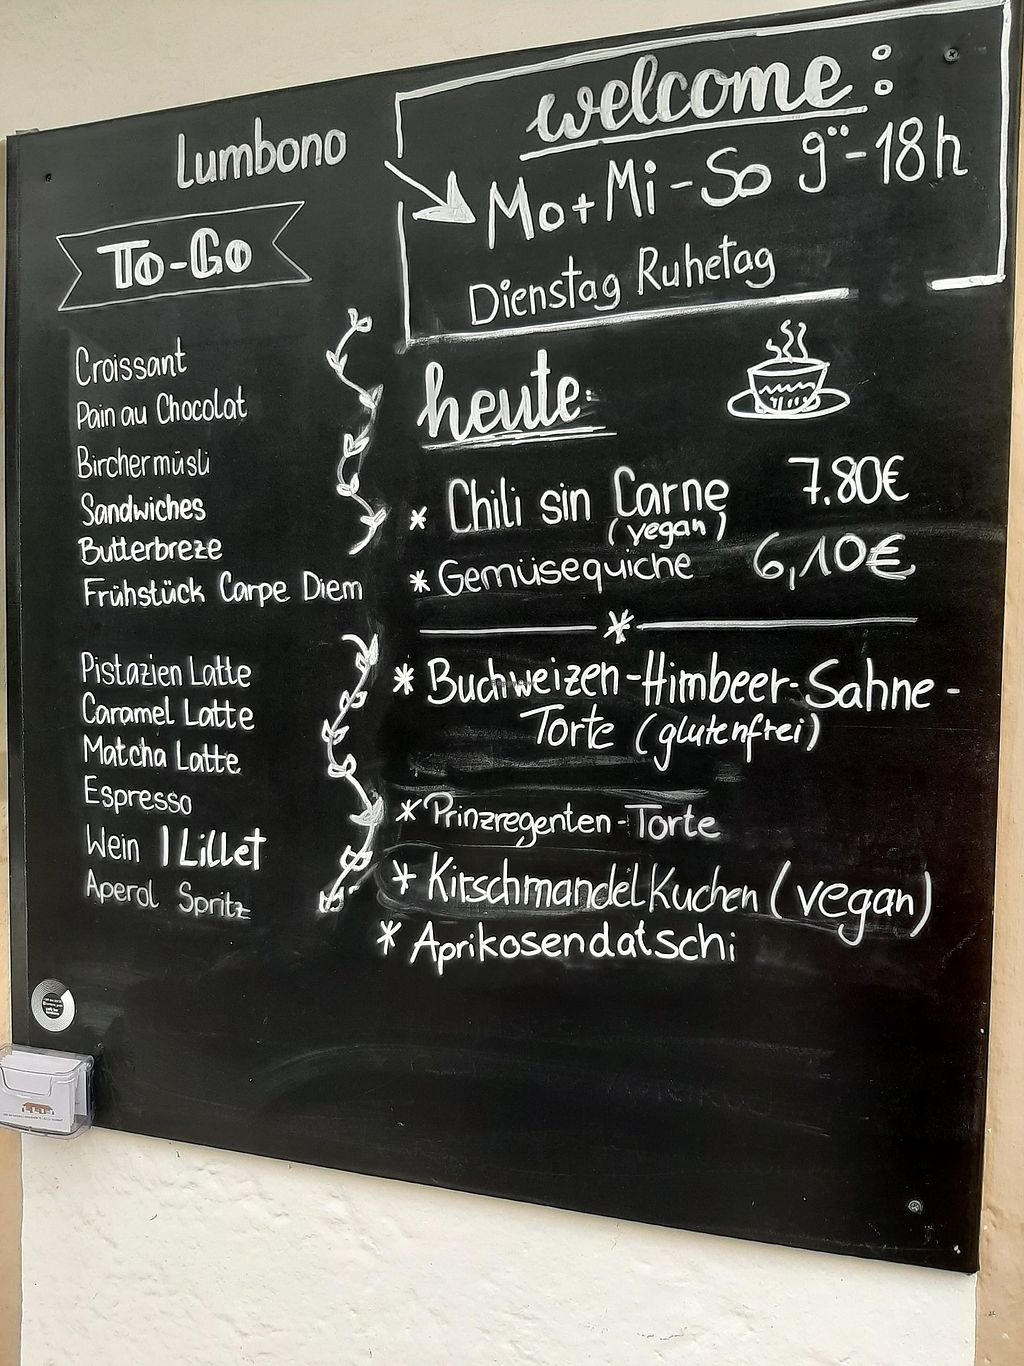 Lumbono
welcome:
Mo+Mi-So 9°°-18h
Dienstag Ruhetag
To-Go
Croissant
Pain au Chocolat
Birchermüsli
Sandwiches
Butterbreze
Frühstück Carpe Diem
Pistazien Latte
Caramel Latte
Matcha Latte
Espresso
Wein | Lillet
Aperol Spritz
heute:
* Chili sin Carne 7.80€
(vegan)
* Gemüsequiche 6,10€
* Buchweizen-Himbeer-Sahne-
Torte (glutenfrei)
* Prinzregenten-Torte
* Kirschmandelkuchen (vegan)
* Aprikosendatschi